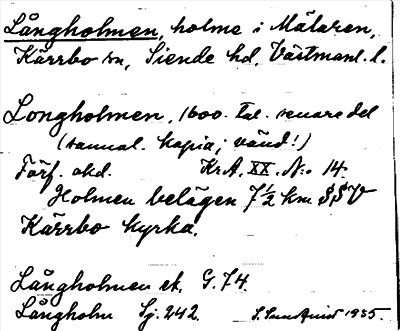 Långholmen, holme i Mälaren,
Kärrbo sn, Siende hd, Västmanl. l.
Longholmen, 1600-tal. senare del
(samml. kopia; vänd!)
Förf. okd. Kr.A. XX. N:o 14.
Holmen belägen 7½ km SSV
Kärrbo kyrka.
Långholmen ek. G. 74.
Långholm Sj. 242. S. Sundquist 1935.